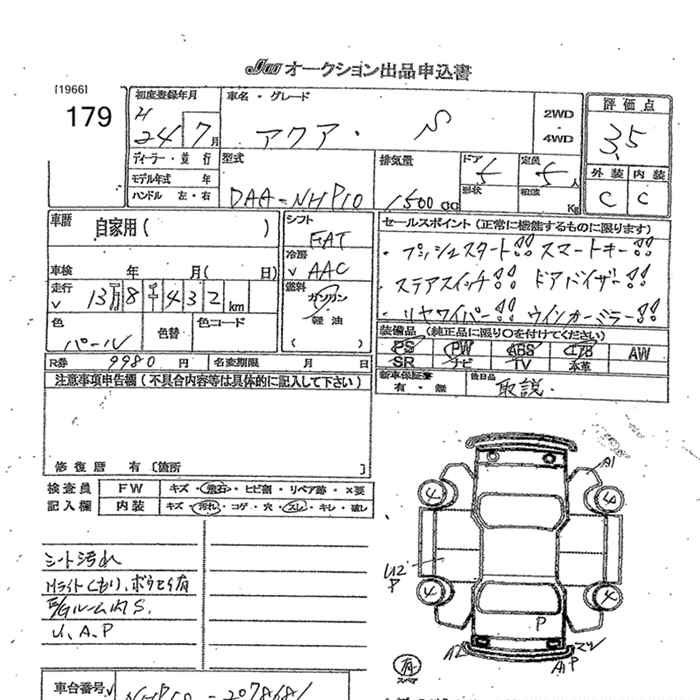 JU オークション出品申込書
[1966]
179
初度登録年月 車名・グレード 評価点
H 24 7月 アクア・ S 2WD・4WD 3.5
ディーラー・並行 型式 排気量 ドア 定員 外装 内装
モデル年式 年 DAA-NHP10 1500 CC 5 5人 C C
ハンドル 左・右 形状 積載 Kg
車歴 自家用( ) シフト FAT セールスポイント (正常に機能するものに限ります)
冷房 AAC ・プッシュスタート!! スマートキー!!
車検 年 月( 日) ・ステアスイッチ!! ドアバイザー!!
走行 13万8千432km 燃料 ガソリン 軽油 ( ) ・リヤワイパー!! ウインカーミラー!!
色 色替 色コード 装備品 (純正品に限り○を付けてください)
パール PS PW ABS エアB AW
R券 9980円 名変期限 月 日 SR ナビ TV 本革
注意事項申告欄 (不具合内容等は具体的に記入して下さい) 新車保証書 有・無 後日品 取説.
修復歴 有 [箇所 ]
検査員 FW キズ・飛石・ヒビ割・リペア跡・×要
記入欄 内装 キズ・汚れ・コゲ・穴・スレ・キレ・破レ
A1
4 4
U2
P
4 4
P
A2
A1 P
有
スペア
シート汚れ
Hライトくもり、
U、A、P
車台番号